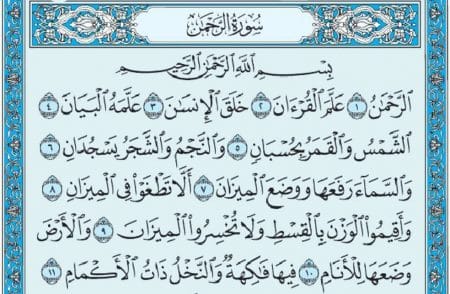 سُورَةُ الرَّحْمَٰنِ
بِسْمِ اللَّهِ الرَّحْمَٰنِ الرَّحِيمِ
الرَّحْمَٰنُ ١ عَلَّمَ الْقُرْءَانَ ٢ خَلَقَ الْإِنسَٰنَ ٣ عَلَّمَهُ الْبَيَانَ ٤
الشَّمْسُ وَالْقَمَرُ بِحُسْبَانٍ ٥ وَالنَّجْمُ وَالشَّجَرُ يَسْجُدَانِ ٦
وَالسَّمَاءَ رَفَعَهَا وَوَضَعَ الْمِيزَانَ ٧ أَلَّا تَطْغَوْا فِي الْمِيزَانِ ٨
وَأَقِيمُوا الْوَزْنَ بِالْقِسْطِ وَلَا تُخْسِرُوا الْمِيزَانَ ٩ وَالْأَرْضَ
وَضَعَهَا لِلْأَنَامِ ١٠ فِيهَا فَٰكِهَةٌ وَالنَّخْلُ ذَاتُ الْأَكْمَامِ ١١